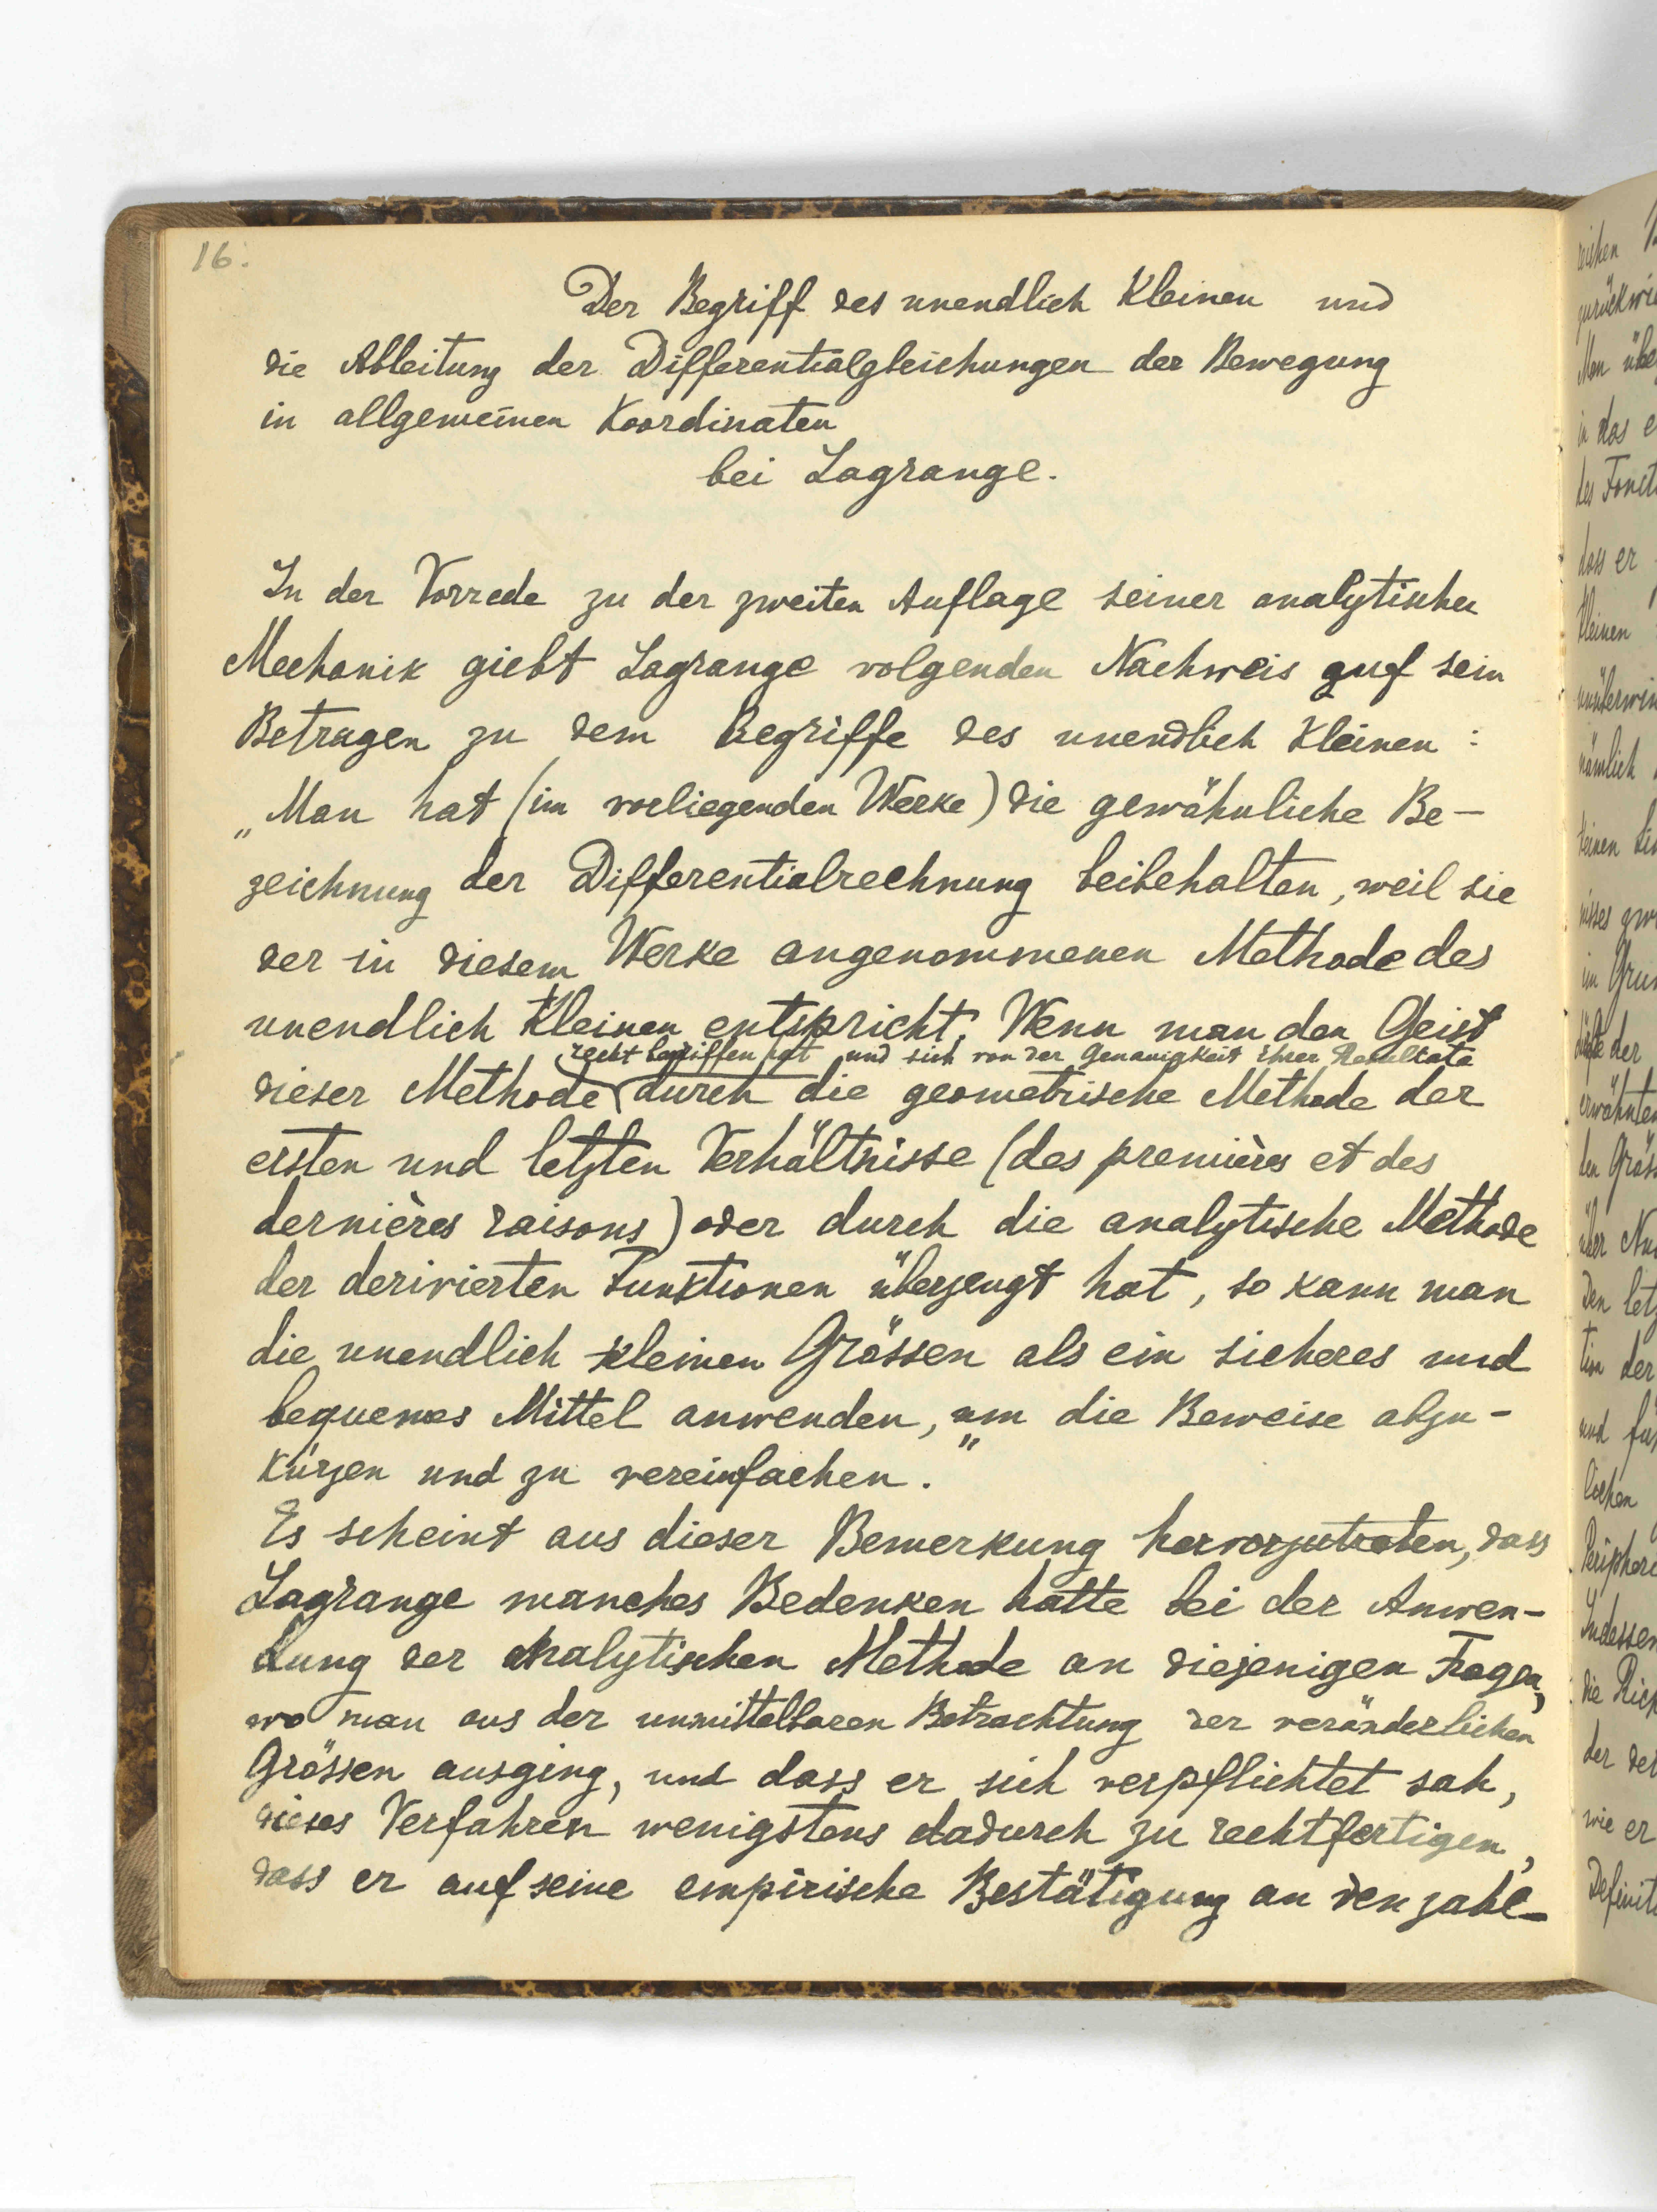 16.
Der Begriff des unendlich Kleinen und
die Ableitung der Differentialgleichungen der Bewegung
in allgemeinen Koordinaten
bei Lagrange.
In der Vorrede zu der zweiten Auflage seiner analytischen
Mechanik giebt Lagrange volgenden Nachweis auf sein
Betragen zu dem Begriffe des unendlich Kleinen :
„Man hat (im vorliegenden Werke) die gewöhnliche Be-
zeichnung der Differentialrechnung beibehalten, weil sie
der in diesem Werke angenommenen Methode des
unendlich Kleinen entspricht. Wenn man den Geist
recht begriffen hat und sich von der Genauigkeit ihrer Resultate
dieser Methode durch die geometrische Methode der
ersten und letzten Verhältnisse (des premières et des
dernières raisons) oder durch die analytische Methode
der derivierten Funktionen überzeugt hat, so kann man
die unendlich kleinen Grössen als ein sicheres und
bequemes Mittel anwenden, um die Beweise abzu-
kürzen und zu vereinfachen."
Es scheint aus dieser Bemerkung hervorzutreten, dass
Lagrange manches Bedenken hatte bei der Anwen-
dung der analytischen Methode an diejenigen Fragen,
wo man aus der unmittelbaren Betrachtung der veränderlichen
Grössen ausging, und dass er sich verpflichtet sah,
dieses Verfahren wenigstens dadurch zu rechtfertigen,
dass er auf seine empirische Bestätigung an den zahl-
zurückwi
Man übe
in das e
des Fonct
dass er
Kleinen
unüberwin
nämlich
keinen
im Grun
der
erwähnten
den Gröss
über
Den letz
tion der
und für
lichen
Peripheri
Indessen
die Rich
der
wie er
Definit